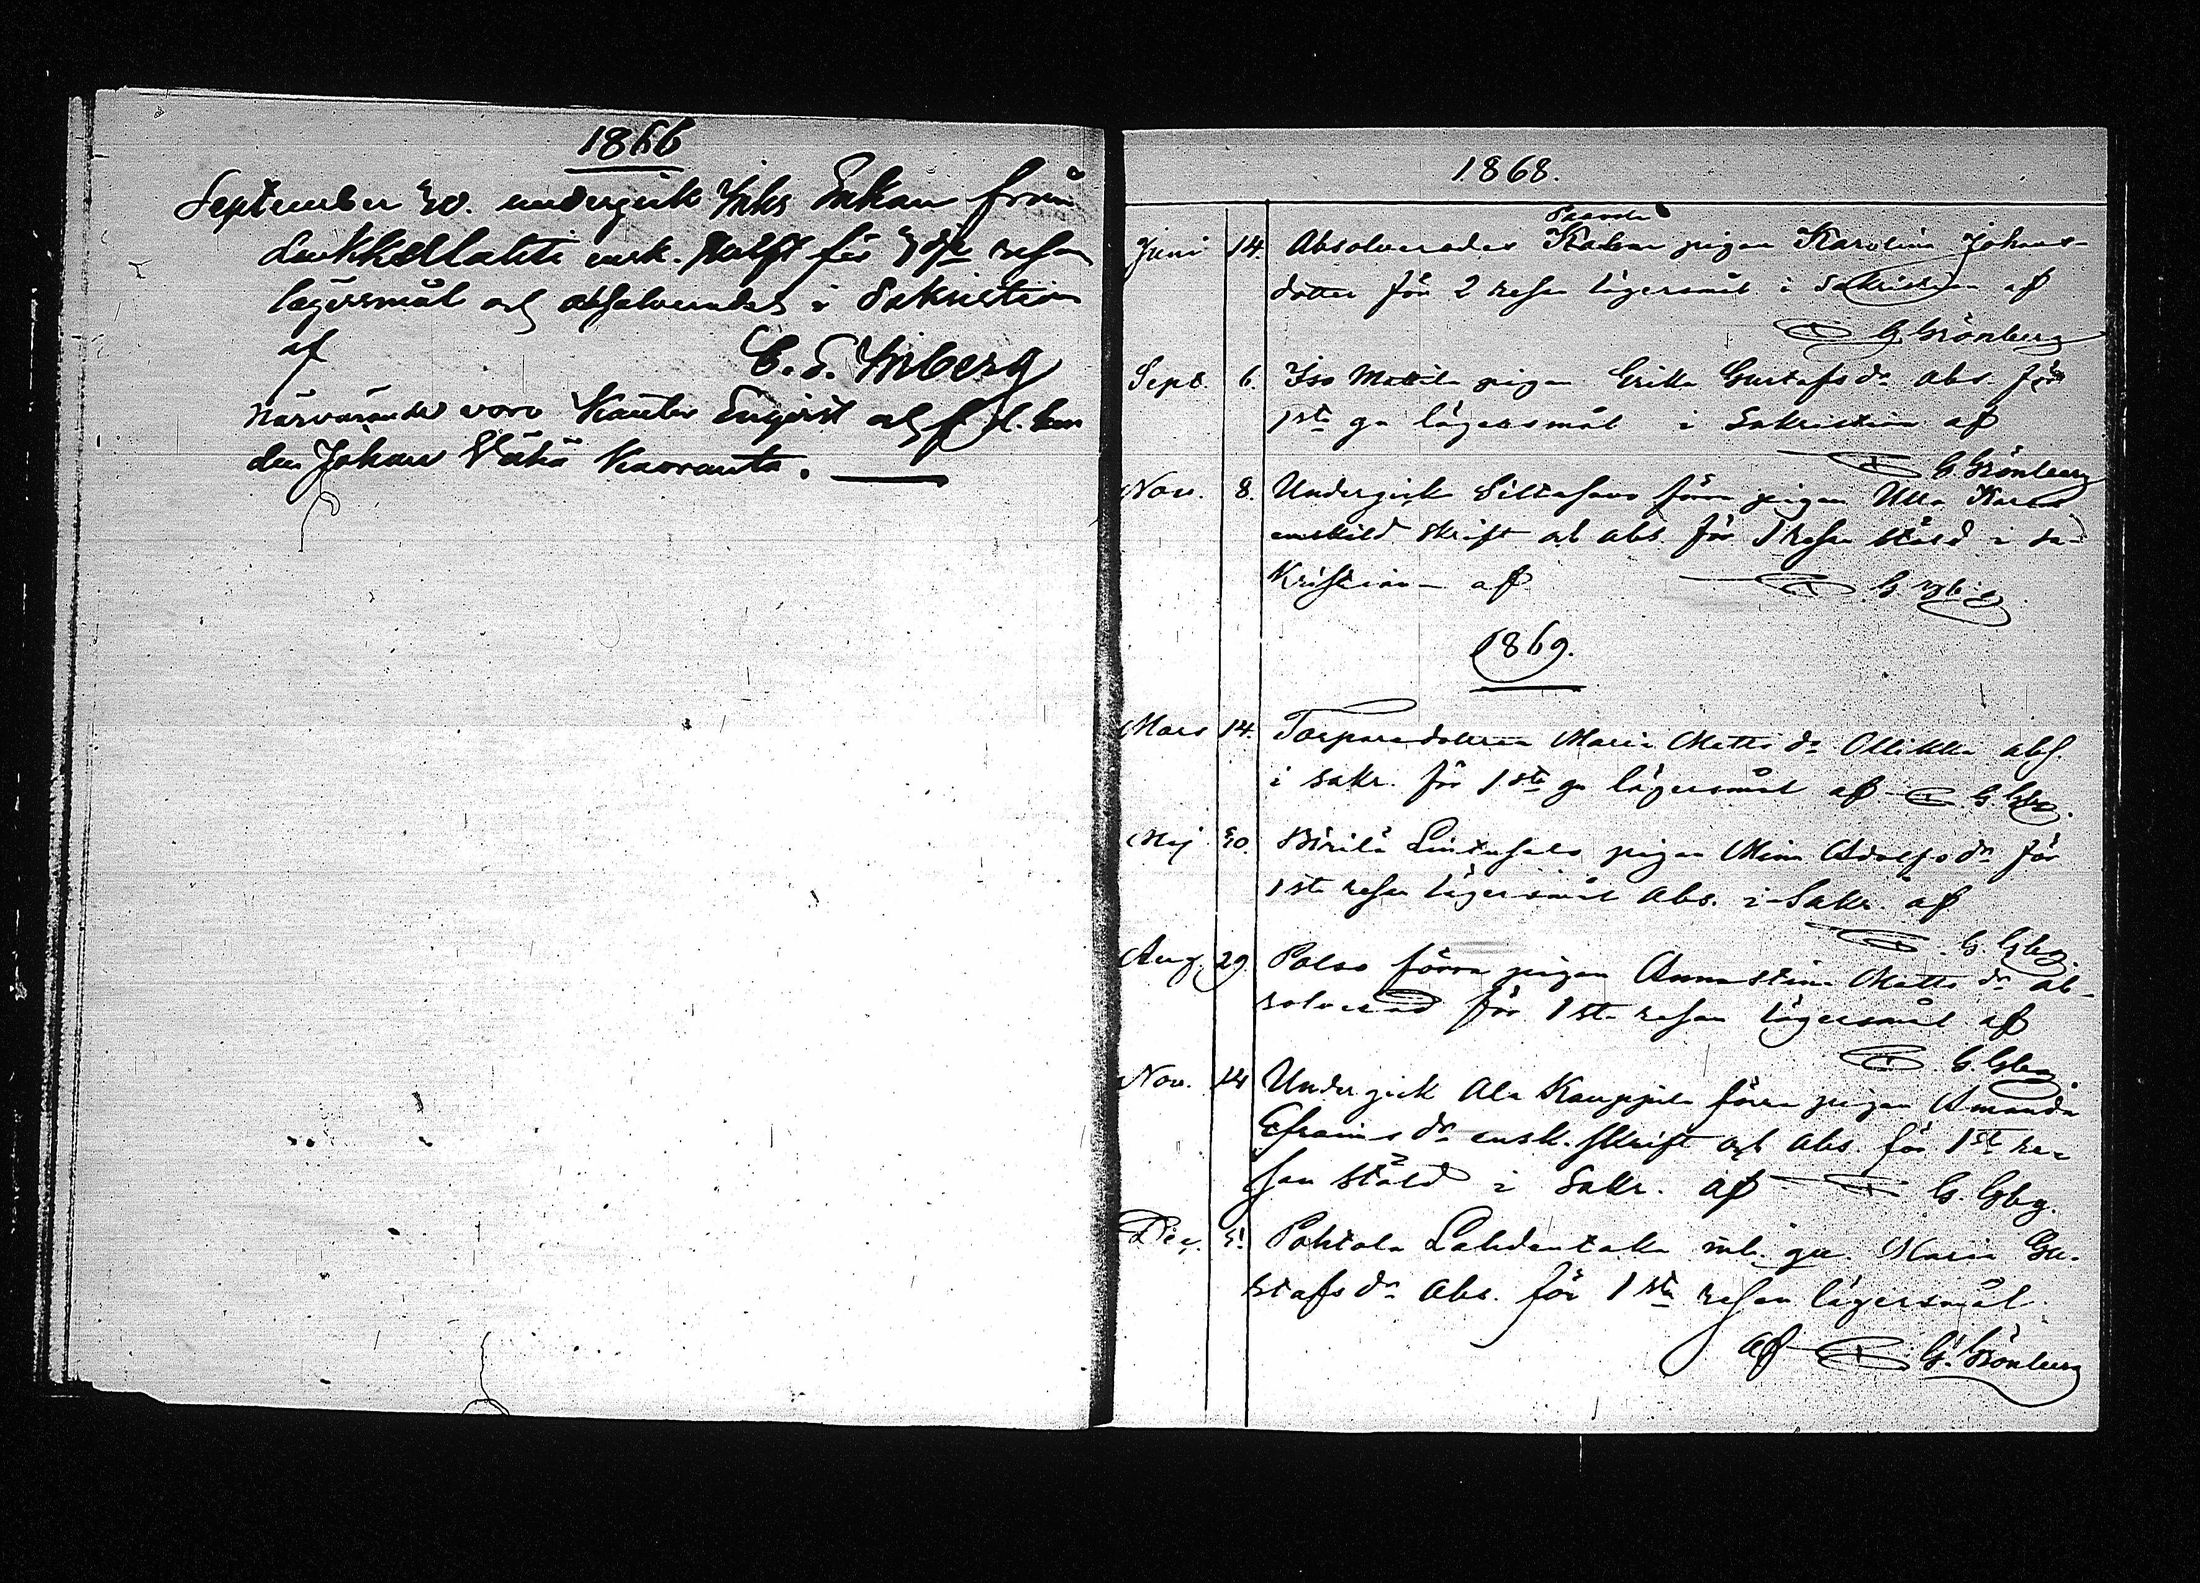 1866
September 30. undergick Inhs Enkan från
Laukkallahti ensk. skrift för 3dje resan
lägersmål och absolverades i Sakristian
af C. S. Inberg
närvarande voro Kantor Enqvist och f. d.
den Johan Vähä Kavranta.
1868.
Juni 14. Absolverades Paavola pigan Karolina Johans-
dotter för 2 resan lägersmål i Sakristian af
G. Grönberg
Sept. 6. Iso Mattila pigan Erika Gustafs dr abs. för
1sta gn lägersmål i Sakristian af
G. Grönberg
Nov. 8. Undergick Siltasavo förra pigan Ulla Karen
enskild skrift och abs. för 1 resan stöld i sa-
kristian af G. Gbg
1869.
Mars 14. Torparedottren Maria Matts dr Ollikka abs.
i sakr. för 1sta gn lägersmål af G. Gbg.
Maj 30. Pirilä Lintusalo pigan Mina Adolfs dr för
1sta resan lägersmål abs. i Sakr. af
G. Gbg.
Aug. 29. Polso förra pigan Annastina Matts dr ab-
solverad för 1sta resan lägersmål af
G. Gbg.
Nov. 14 Undergick Ala Kauppila förra pigan Amanda
Efraims dr ensk. skrift och abs. för 1sta re-
san stöld i Sakr. af G. Gbg.
Dec. 5. Pohtola Lahdentaka inh. gu. Maria Gu-
stafs dr abs. för 1sta resan lägersmål
af G. Grönberg